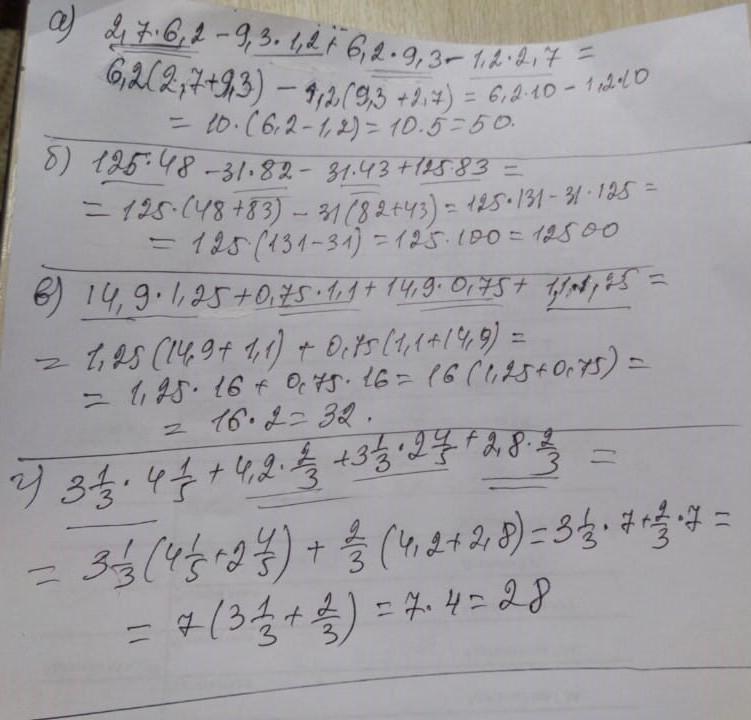 а) 2,7·6,2 - 9,3·1,2 + 6,2·9,3 - 1,2·2,7 =
6,2(2,7+9,3) - 1,2(9,3+2,7) = 6,2·10 - 1,2·10
= 10·(6,2-1,2) = 10·5 = 50.
б) 125·48 - 31·82 - 31·43 + 125·83 =
= 125·(48+83) - 31(82+43) = 125·131 - 31·125 =
= 125·(131-31) = 125·100 = 12500
в) 14,9·1,25 + 0,75·1,1 + 14,9·0,75 + 1,1·1,25 =
= 1,25(14,9+1,1) + 0,75(1,1+14,9) =
= 1,25·16 + 0,75·16 = 16(1,25+0,75) =
= 16·2 = 32.
г) 3 1/3 · 4 1/5 + 4,2 · 2/3 + 3 1/3 · 2 4/5 + 2,8 · 2/3 =
= 3 1/3 (4 1/5 + 2 4/5) + 2/3 (4,2+2,8) = 3 1/3 · 7 + 2/3 · 7 =
= 7 (3 1/3 + 2/3) = 7·4 = 28